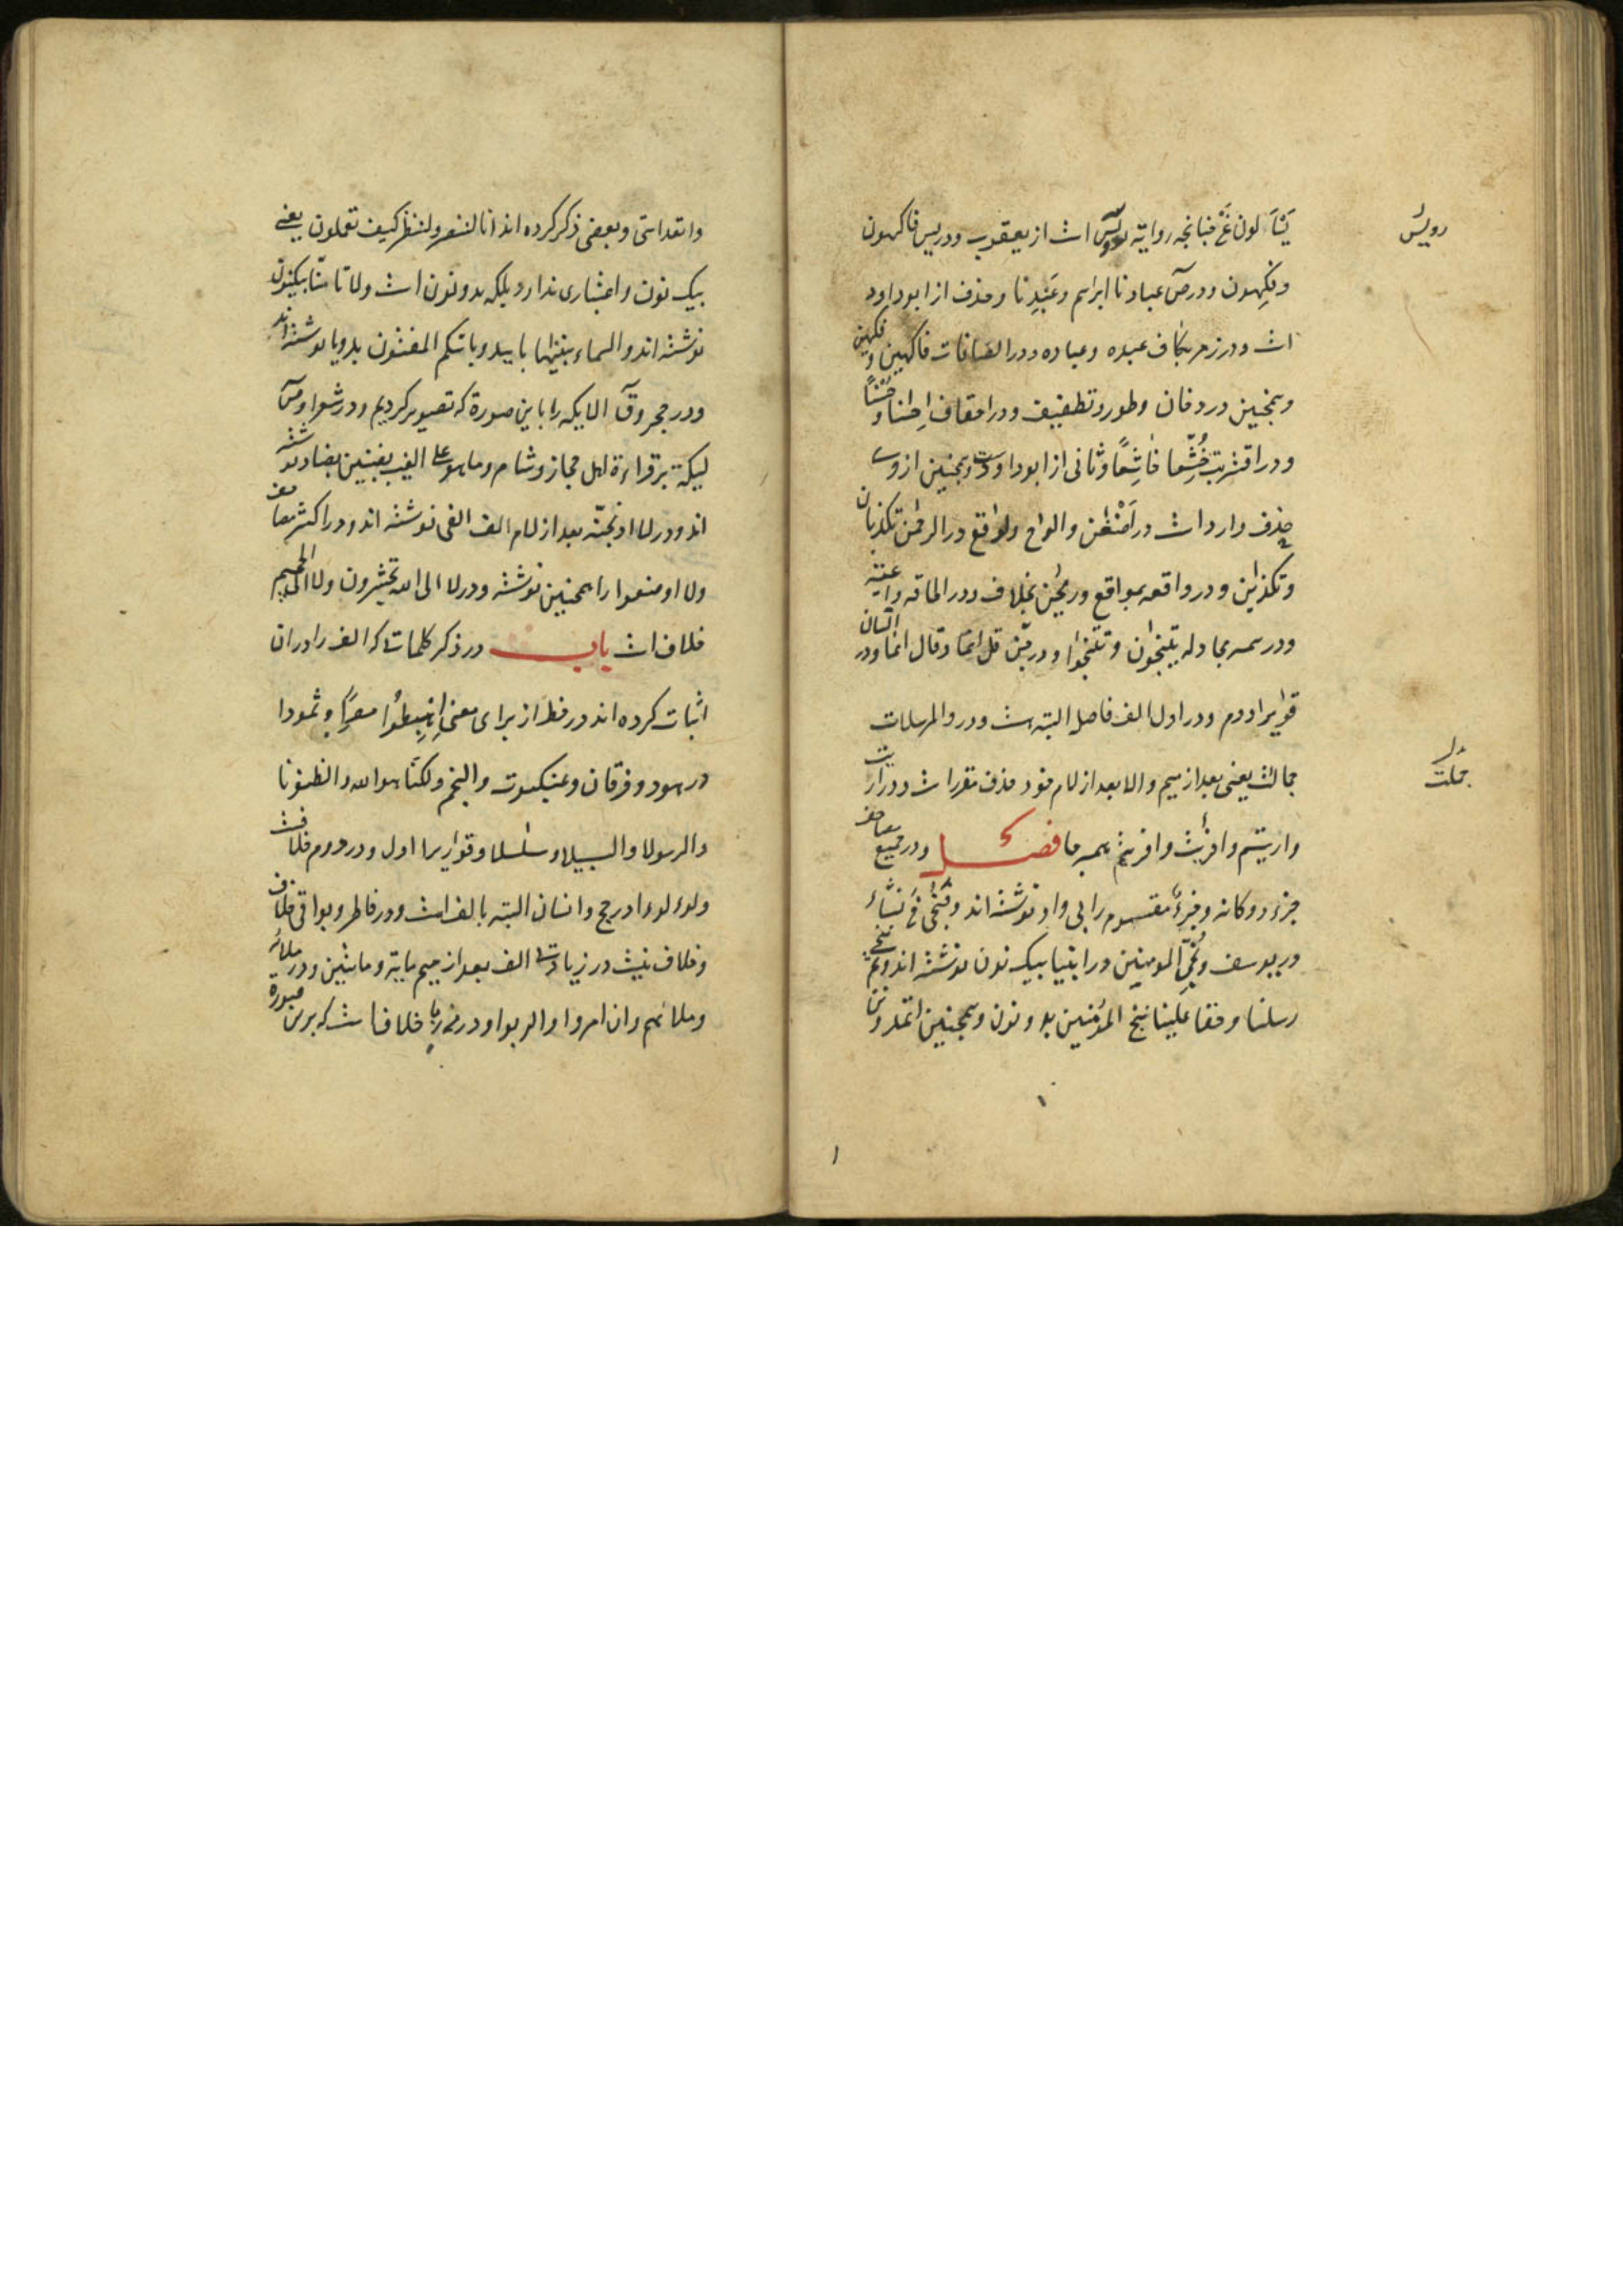 یَسّآلون عَنْ چنانچه روایة رویس است از یعقوب و در یس فاکهون
رویس
وفکهون و در صٓ عبادنا ابراهیم و عَبْدِنا و حذف از ابو داود
است و در زمر بکاف عبده و عباده و در الصافات فاکهین و فکهین
و همچنین در دخان و طور و تطفیف و در احقاف اِحسٰنا و حُسْناً
و در اقتربت خُشَّعا خاشِعاً و ثانی از ابو داودست و همچنین از وی
حذف وارد است در اَضْغٰن و الوٰح و لوٰقع در الرحمن تکذبان
و تکذبٰن و در واقعه بموٰقع و ریحٰن بخلاف و در الحاقه واعیة
و در سمع مجادله یتنٰجون و تتنٰجوا و در جن قل انما و قال انما و در انسان
قوٰریرا دوم و در اول الف فاصل البته هست و در والمرسلات
جمالت یعنی بعد از میم والا بعد از لام خود حذف مقرر است و در ارایت
جملت
واریتم وافرایت وافریتم همه جا فصل و در جمیع مصاحف
جزء دوکانه وجزءٌ مقسوم را بی واو نوشته اند و فنُجّی مَنْ نشاء
در یوسف و نُجّی المومنین در انبیا بیک نون نوشته اند و ثم ننجی
رسلنا و حقا علینا ننج المؤمنین بدو نون و همچنین اتمدونن
واتعداننی و بعضی ذکر کرده اند انا لننصر و لننظر کیف تعملون یعنی
بیک نون و اعتباری ندارد بلکه بدو نون است و لا تامنّا بیکنون
نوشته اند والسماء بنینٰها باییدٍ و بایّکم المفتون بدو یا نوشته اند
و در حجر و قٓ الایکه را باین صورة که تصویر کردیم و در شعرا و صٓ
لیکة بر قراءة اهل حجاز و شام و ما هو علی الغیب بضنین بضاد نوشته
اند و در لااذبحنّه بعد از لام الف الفی نوشته اند و در اکثر مصاحف
ولااوضعوا را همچنین نوشته و در لا الی الله تحشرون و لا الی الجحیم
خلاف است باب در ذکر کلمات که الف را در ان
اثبات کرده اند در خط از برای معنی اِهْبِطُوا مصراً و ثمودا
در هود و فرقان و عنکبوت و النجم و لکنّا هو الله و الظنونا
والرسولا والسبیلا و سلٰسلا و قوٰریرا اول و در دوم خلافست
ولؤلؤا در حج و انسان البته بالف است و در فاطر و بواقی خلاف
و خلاف نیست در زیادتی الف بعد از میم مایة و مایتین و در ملائه
و ملائهم وان امروا والربوا و در من رِبا خلافست که برین صورة